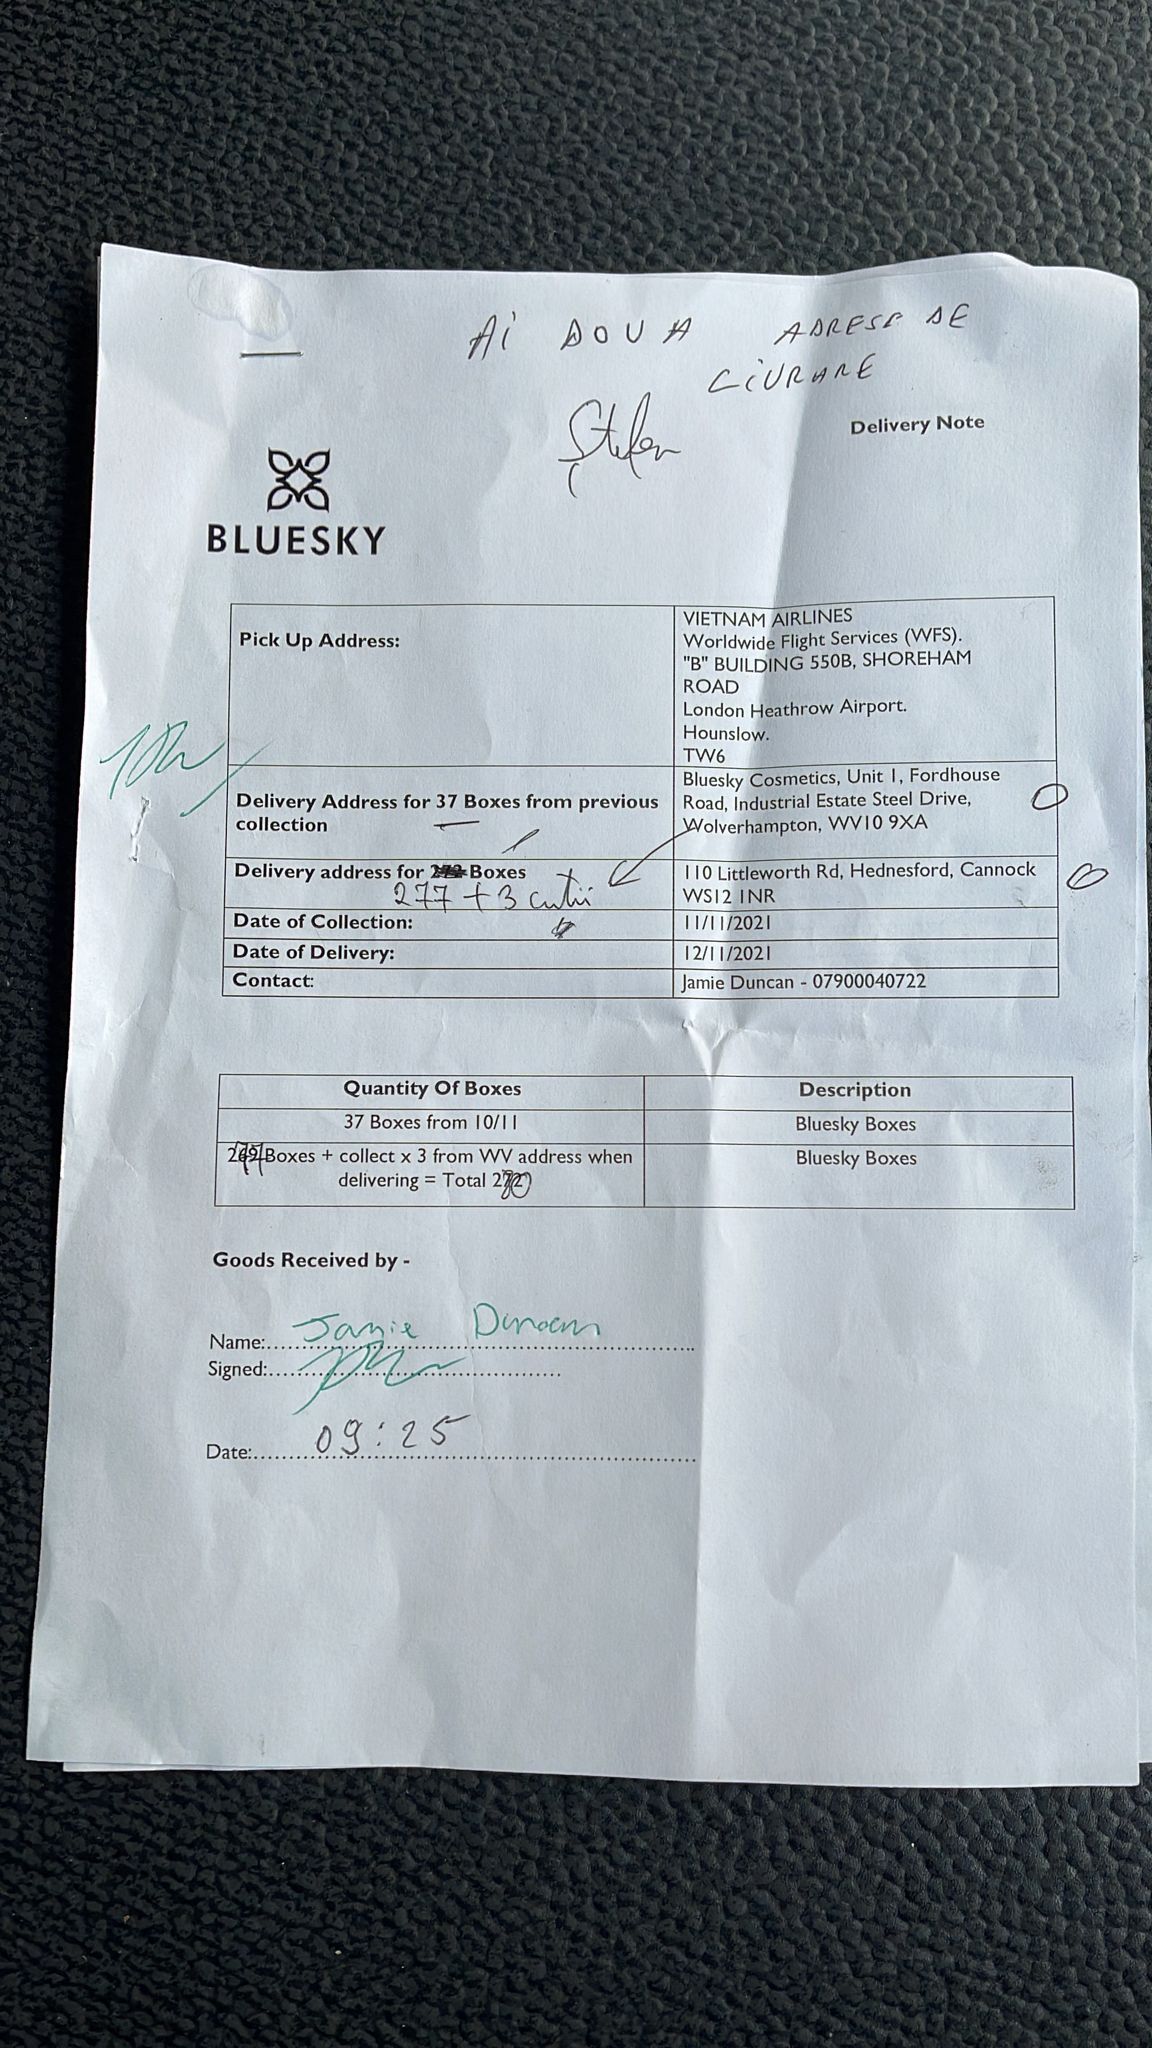 Ai DOUA ADRESE DE
LiVRARE
Ștefan
Delivery Note
BLUESKY
Pick Up Address:
VIETNAM AIRLINES
Worldwide Flight Services (WFS).
"B" BUILDING 550B, SHOREHAM
ROAD
London Heathrow Airport.
Hounslow.
TW6
Delivery Address for 37 Boxes from previous
collection
Bluesky Cosmetics, Unit 1, Fordhouse
Road, Industrial Estate Steel Drive,
Wolverhampton, WV10 9XA
Delivery address for 272 Boxes
277 + 3 cutii
110 Littleworth Rd, Hednesford, Cannock
WS12 1NR
Date of Collection:
11/11/2021
Date of Delivery:
12/11/2021
Contact:
Jamie Duncan - 07900040722
Quantity Of Boxes
Description
37 Boxes from 10/11
Bluesky Boxes
277 Boxes + collect x 3 from WV address when
delivering = Total 280
Bluesky Boxes
Goods Received by -
Name: Jamie Duncan
Signed:
Date: 09:25